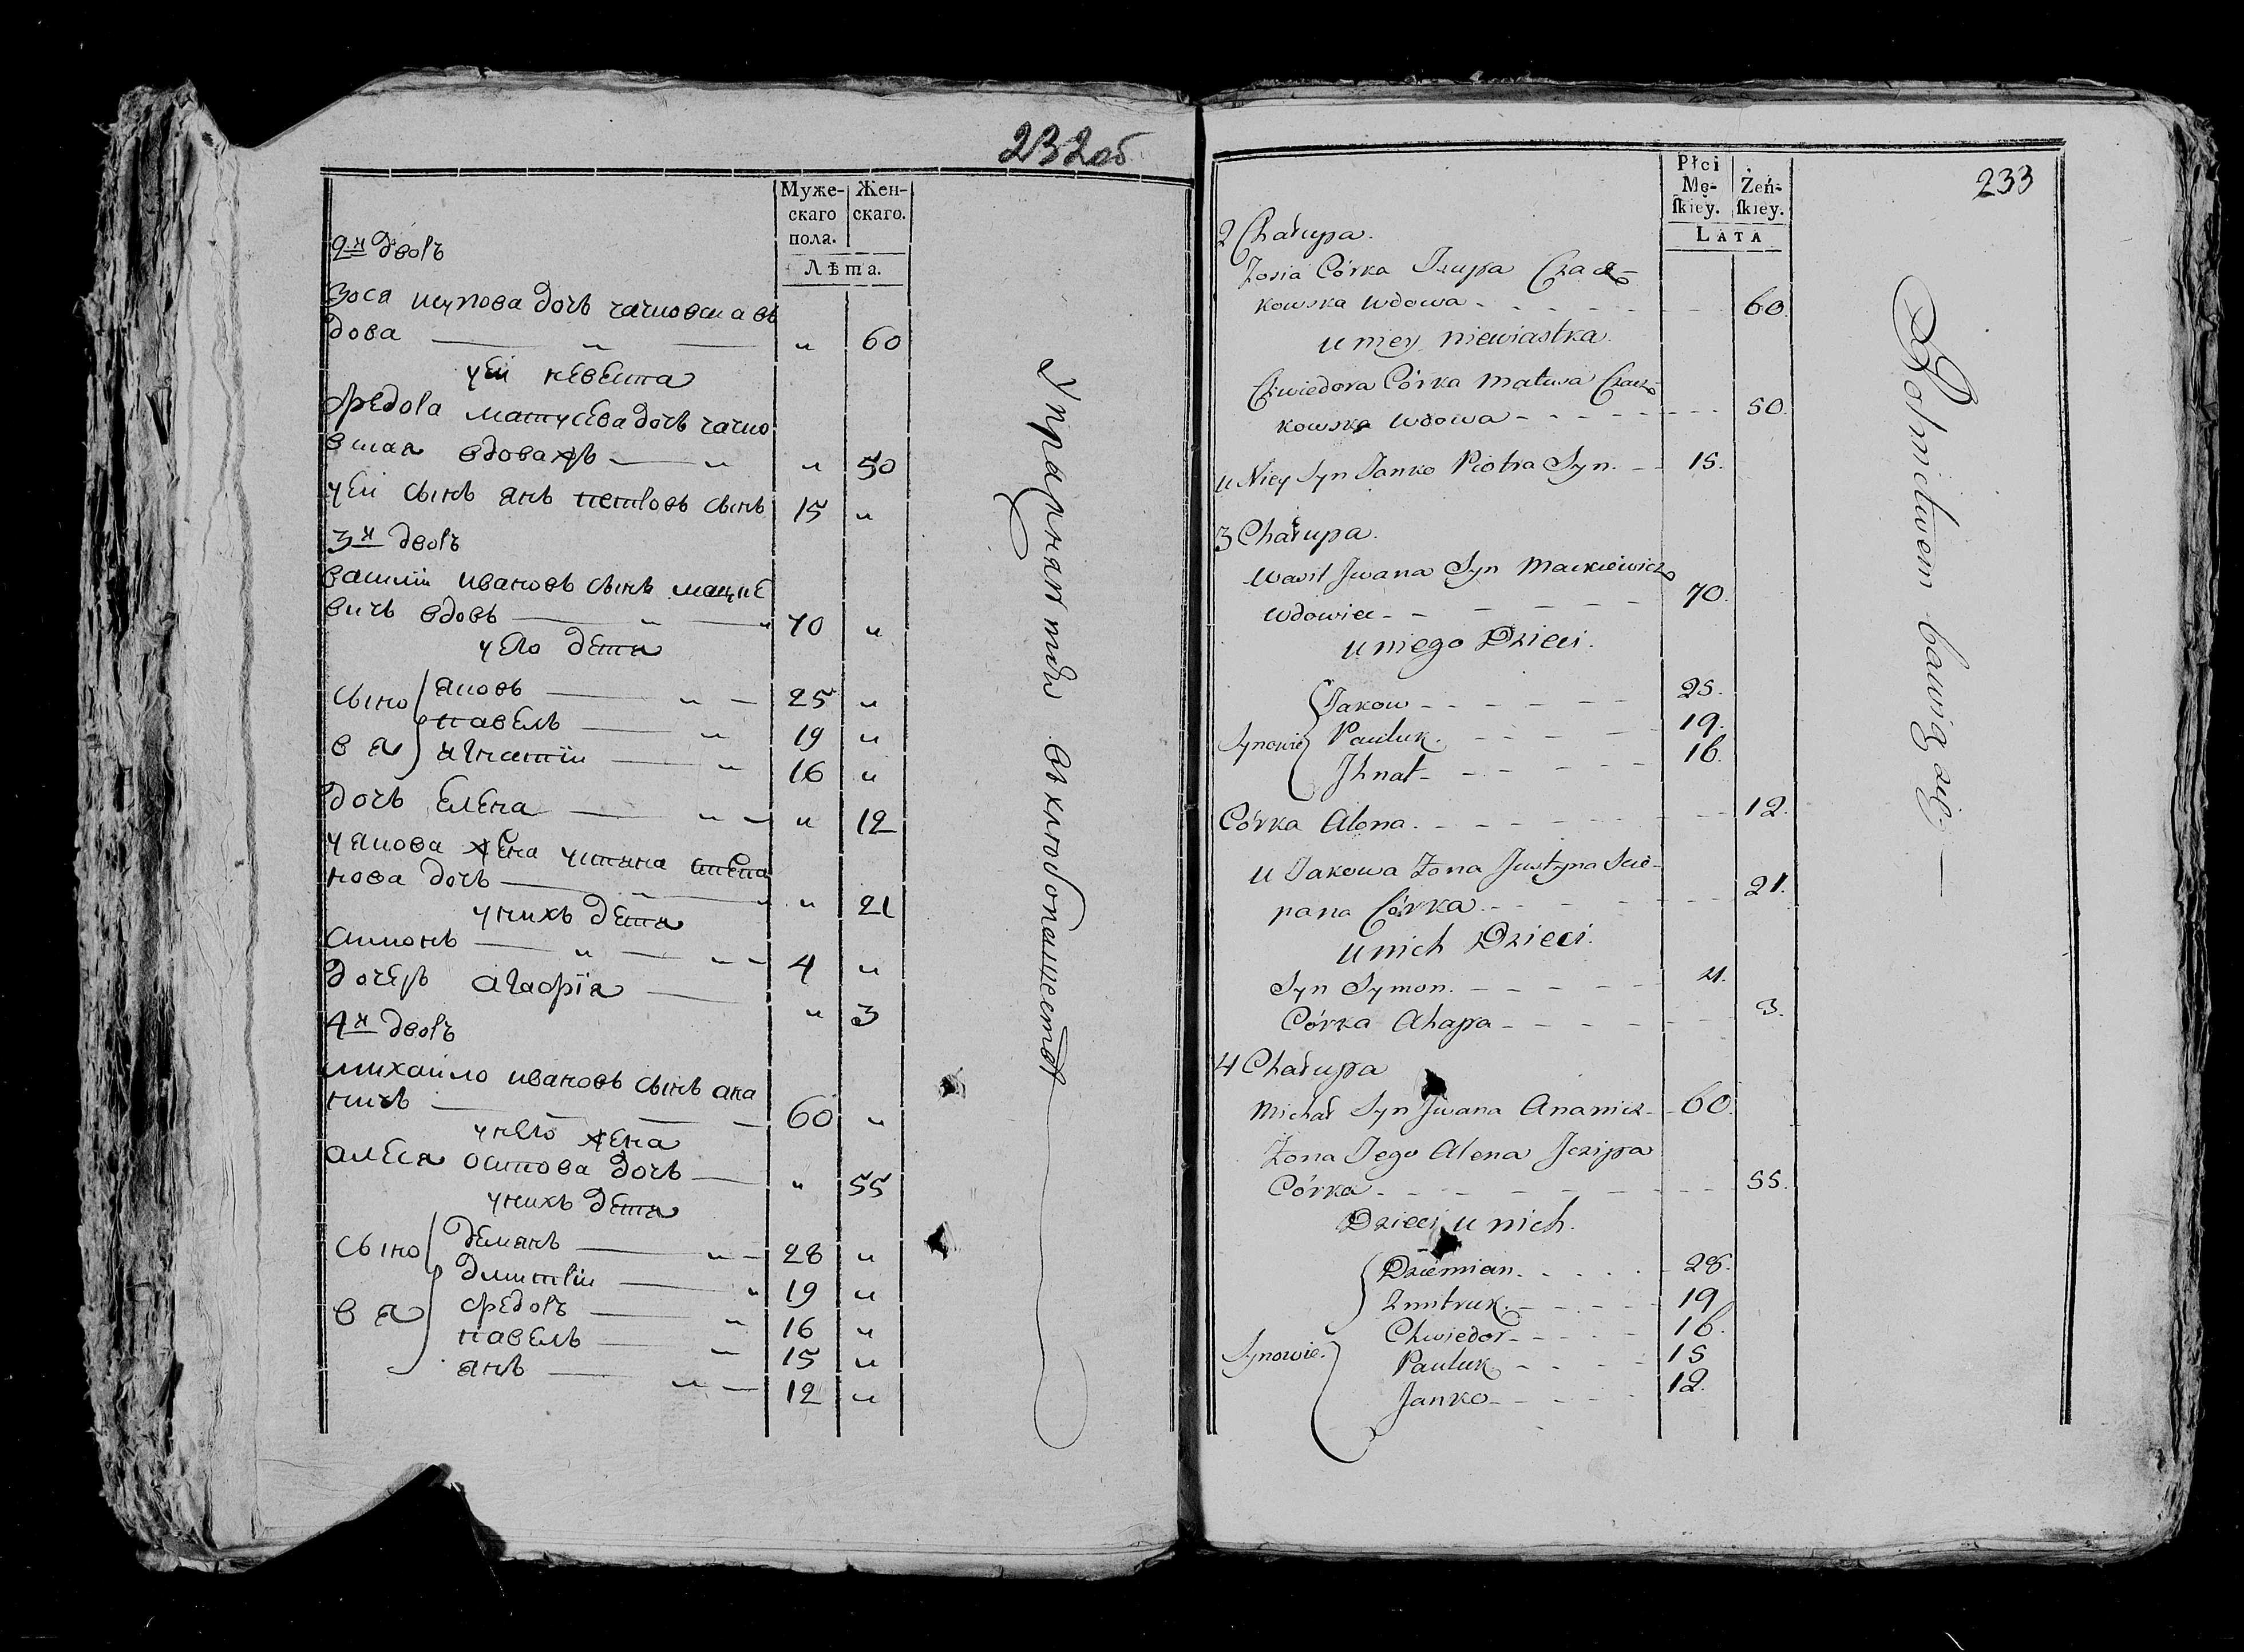 232об
Муже-
скаго
пола.
Жен-
скаго.
Лѣта.
2й дворъ
Зося ицупова дочь чачковска въ
дова „ 60
у ей невеска
Федора матусева дочь чачко
вская вдова „ 50
у ей сынъ янъ петровъ сынъ 15 „
3й дворъ
василій ивановъ сынъ мацке
вичъ вдовъ 70 „
у его дети
сыно
яковъ 25 „
павелъ 19 „
в я
игнатій 16 „
дочь Елена „ 12
у якова жена устина степа
нова дочь „ 21
у нихъ дети
симонъ 4 „
дочерь агафія „ 3
4й дворъ
михайло ивановъ сынъ ана
ничъ 60 „
у него жена
алеся осипова дочь „ 55
у нихъ дети
сыно
демянъ 28 „
дмитрій 19 „
в я
федоръ 16 „
павелъ 15 „
янъ 12 „
упражняютца въ хлебопашестве
233
Płci
Mę-
ſkiey.
Żeń-
ſkiey.
LATA
2 Chałupa.
Zosia Córka Izupa Czacz-
kowska wdowa 60.
u niey niewiastka.
Chwiedora Córka Matusa Czacz-
kowska wdowa 50.
u Niey Syn Janko Piotra Syn. 15.
3 Chałupa.
Wasil Jwana Syn Mackiewicz
wdowiec 70.
u niego Dzieci.
Synowie
Jakow 25.
Pauluk. 19.
Jhnat 16.
Córka Alena. 12.
u Jakowa Żona Justyna Scie-
pana Córka. 21.
u nich Dzieci.
Syn Symon. 4.
Córka Ahapa 3.
4 Chałupa
Michał Syn Jwana Ananicz 60.
Żona Jego Alena Jezipa
Córka 55.
Dzieci u nich.
Synowie.
Dziemian. 28.
Zmitruk. 19
Chwiedor 16.
Pauluk 15
Janko 12.
Rolnictwem bawią się.